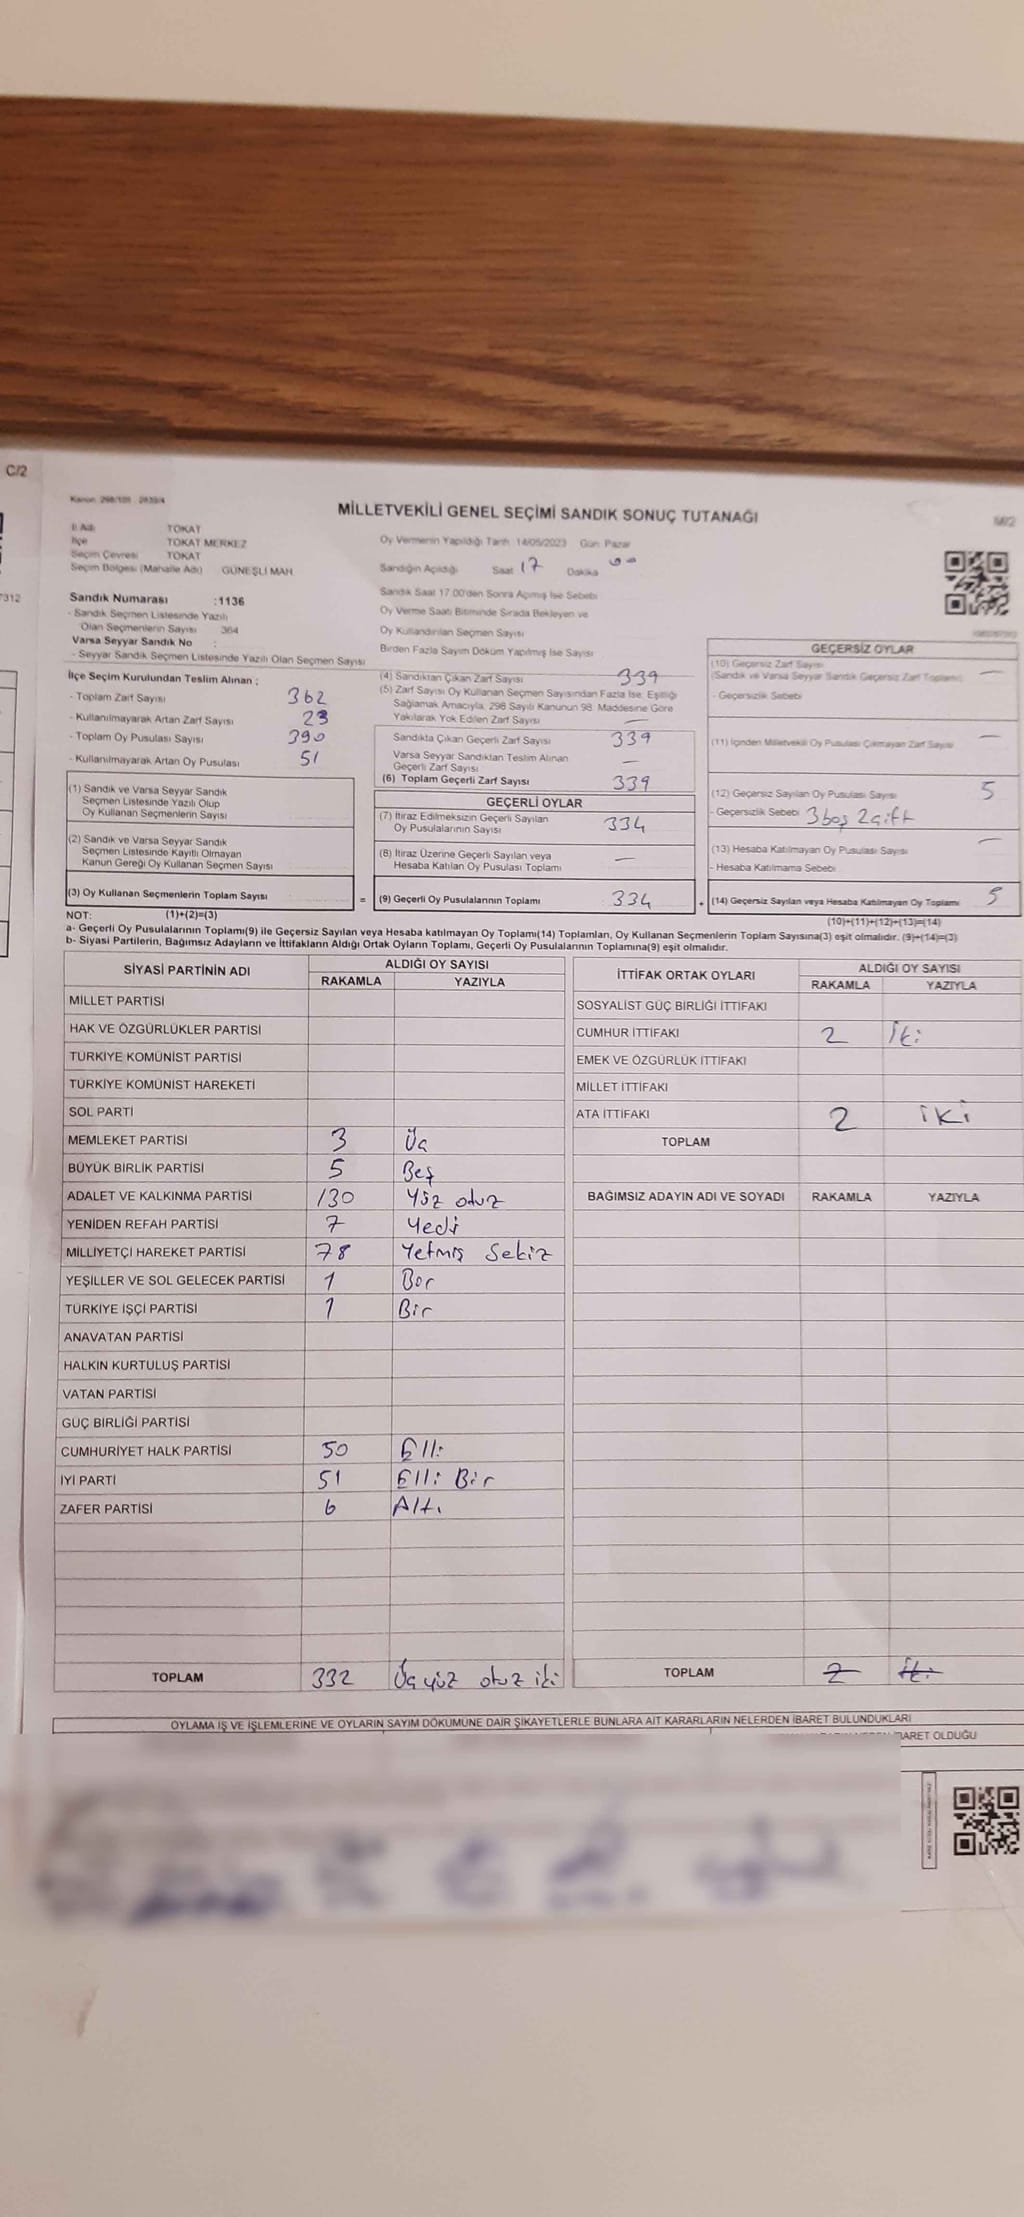 C/2
Kanun: 298/105 , 2839/4
MİLLETVEKİLİ GENEL SEÇİMİ SANDIK SONUÇ TUTANAĞI
M/2
İl Adı TOKAT
İlçe TOKAT MERKEZ
Seçim Çevresi TOKAT
Seçim Bölgesi (Mahalle Adı) GÜNEŞLİ MAH.
Oy Vermenin Yapıldığı Tarih: 14/05/2023 Gün: Pazar
Sandığın Açıldığı Saat 17 Dakika 00
7312
Sandık Numarası :1136
- Sandık Seçmen Listesinde Yazılı
Olan Seçmenlerin Sayısı 364
Varsa Seyyar Sandık No :
- Seyyar Sandık Seçmen Listesinde Yazılı Olan Seçmen Sayısı
Sandık Saat 17.00'den Sonra Açımış İse Sebebi
Oy Verme Saati Bitiminde Sırada Bekleyen ve
Oy Kullandırılan Seçmen Sayısı
Birden Fazla Sayım Döküm Yapılmış İse Sayısı
İlçe Seçim Kurulundan Teslim Alınan ;
- Toplam Zarf Sayısı 362
- Kullanılmayarak Artan Zarf Sayısı 23
- Toplam Oy Pusulası Sayısı 390
- Kullanılmayarak Artan Oy Pusulası 51
(1) Sandık ve Varsa Seyyar Sandık
Seçmen Listesinde Yazılı Olup
Oy Kullanan Seçmenlerin Sayısı
(2) Sandık ve Varsa Seyyar Sandık
Seçmen Listesinde Kayıtlı Olmayan
Kanun Gereği Oy Kullanan Seçmen Sayısı
(3) Oy Kullanan Seçmenlerin Toplam Sayısı
(4) Sandıktan Çıkan Zarf Sayısı 339
(5) Zarf Sayısı Oy Kullanan Seçmen Sayısından Fazla İse; Eşitliği
Sağlamak Amacıyla, 298 Sayılı Kanunun 98. Maddesine Göre
Yakılarak Yok Edilen Zarf Sayısı —
Sandıkta Çıkan Geçerli Zarf Sayısı 339
Varsa Seyyar Sandıktan Teslim Alınan
Geçerli Zarf Sayısı —
(6) Toplam Geçerli Zarf Sayısı 339
GEÇERLİ OYLAR
(7) İtiraz Edilmeksizin Geçerli Sayılan
Oy Pusulalarının Sayısı 334
(8) İtiraz Üzerine Geçerli Sayılan veya
Hesaba Katılan Oy Pusulası Toplamı —
= (9) Geçerli Oy Pusulalarının Toplamı 334
GEÇERSİZ OYLAR
(10) Geçersiz Zarf Sayısı
(Sandık ve Varsa Seyyar Sandık Geçersiz Zarf Toplamı) —
- Geçersizlik Sebebi
(11) İçinden Milletvekili Oy Pusulası Çıkmayan Zarf Sayısı —
(12) Geçersiz Sayılan Oy Pusulası Sayısı 5
- Geçersizlik Sebebi 3 boş 2 çift
(13) Hesaba Katılmayan Oy Pusulası Sayısı —
- Hesaba Katılmama Sebebi
+ (14) Geçersiz Sayılan veya Hesaba Katılmayan Oy Toplamı 5
NOT: (1)+(2)=(3)
(10)+(11)+(12)+(13)=(14)
a- Geçerli Oy Pusulalarının Toplamı(9) ile Geçersiz Sayılan veya Hesaba katılmayan Oy Toplamı(14) Toplamları, Oy Kullanan Seçmenlerin Toplam Sayısına(3) eşit olmalıdır. (9)+(14)=(3)
b- Siyasi Partilerin, Bağımsız Adayların ve İttifakların Aldığı Ortak Oyların Toplamı, Geçerli Oy Pusulalarının Toplamına(9) eşit olmalıdır.
SİYASİ PARTİNİN ADI ALDIĞI OY SAYISI
RAKAMLA YAZIYLA
MİLLET PARTİSİ
HAK VE ÖZGÜRLÜKLER PARTİSİ
TÜRKİYE KOMÜNİST PARTİSİ
TÜRKİYE KOMÜNİST HAREKETİ
SOL PARTİ
MEMLEKET PARTİSİ 3 Üç
BÜYÜK BİRLİK PARTİSİ 5 Beş
ADALET VE KALKINMA PARTİSİ 130 Yüz otuz
YENİDEN REFAH PARTİSİ 7 Yedi
MİLLİYETÇİ HAREKET PARTİSİ 78 Yetmiş Sekiz
YEŞİLLER VE SOL GELECEK PARTİSİ 1 Bir
TÜRKİYE İŞÇİ PARTİSİ 1 Bir
ANAVATAN PARTİSİ
HALKIN KURTULUŞ PARTİSİ
VATAN PARTİSİ
GÜÇ BİRLİĞİ PARTİSİ
CUMHURİYET HALK PARTİSİ 50 Elli
İYİ PARTİ 51 Elli Bir
ZAFER PARTİSİ 6 Altı
TOPLAM 332 Üçyüz otuz iki
İTTİFAK ORTAK OYLARI ALDIĞI OY SAYISI
RAKAMLA YAZIYLA
SOSYALİST GÜÇ BİRLİĞİ İTTİFAKI
CUMHUR İTTİFAKI 2 İki
EMEK VE ÖZGÜRLÜK İTTİFAKI
MİLLET İTTİFAKI
ATA İTTİFAKI 2 iki
TOPLAM
BAĞIMSIZ ADAYIN ADI VE SOYADI RAKAMLA YAZIYLA
TOPLAM 2 İki
OYLAMA İŞ VE İŞLEMLERİNE VE OYLARIN SAYIM DÖKÜMÜNE DAİR ŞİKAYETLERLE BUNLARA AİT KARARLARIN NELERDEN İBARET BULUNDUKLARI
BARET OLDUĞU